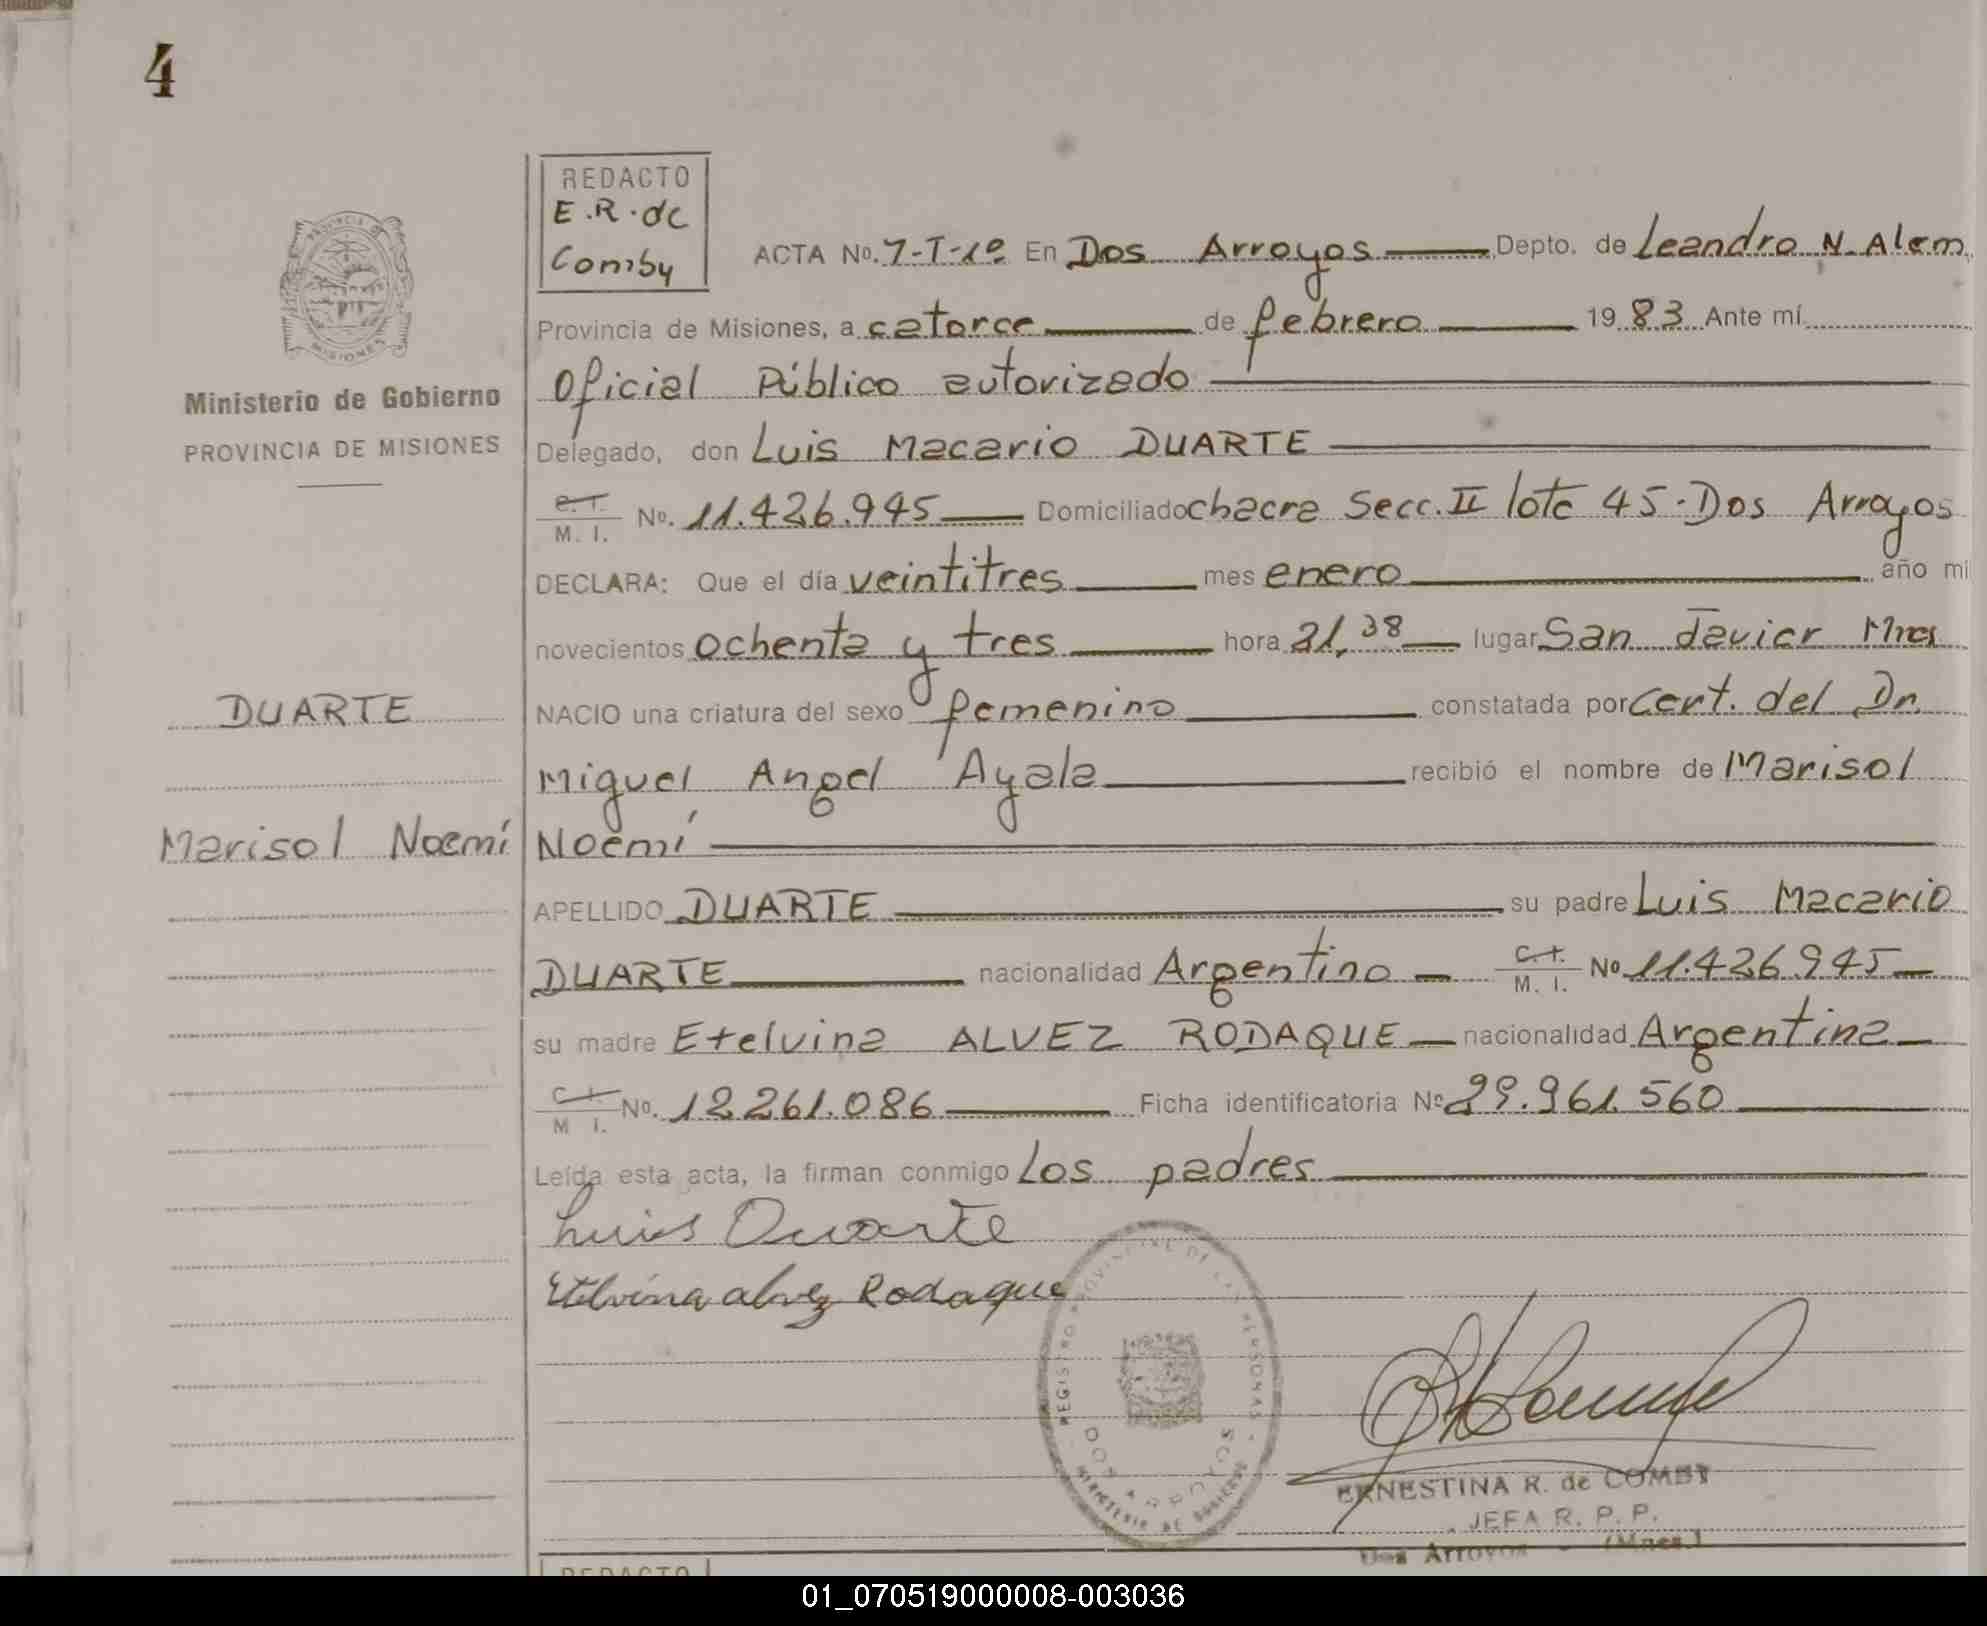 4
REDACTO
E.R. de
Comby
ACTA No. 7-T-1º En Dos Arroyos Depto. de Leandro N. Alem
Provincia de Misiones, a catorce de febrero 1983 Ante mí
Oficial Público autorizado
Ministerio de Gobierno
PROVINCIA DE MISIONES
Delegado, don Luis Macario DUARTE
C.I. M. I. No. 11.426.945 Domiciliado chacra Secc. II lote 45. Dos Arroyos
DECLARA: Que el día veintitres mes enero año mi
novecientos ochenta y tres hora 21,38 lugar San Javier Mnes
DUARTE
NACIO una criatura del sexo femenino constatada por Cert. del Dr.
Miguel Angel Ayala recibió el nombre de Marisol
Marisol Noemí
Noemí
APELLIDO DUARTE su padre Luis Macario
DUARTE nacionalidad Argentino C.I. M. I. No 11.426.945
su madre Etelvina ALVEZ RODAQUE nacionalidad Argentina
C.I. M I. No. 12.261.086 Ficha identificatoria No 29.961.560
Leída esta acta, la firman conmigo Los padres
Luis Duarte
Etelvina alvez Rodaque
REGISTRO PROVINCIAL DE LAS PERSONAS
DOS ARROYOS
MINISTERIO DE GOBIERNO
ERNESTINA R. de COMBY
JEFA R. P. P.
Dos Arroyos - (Mnes.)
REDACTO
01_070519000008-003036